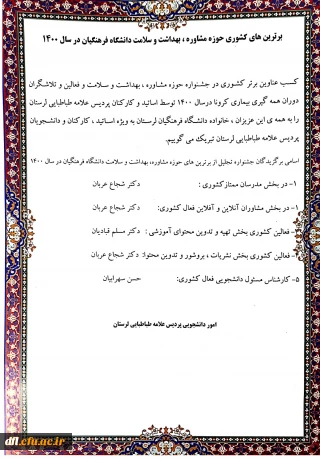 برترین های کشوری حوزه مشاوره ، بهداشت و سلامت دانشگاه فرهنگیان در سال ۱۴۰۰
کسب عناوین برتر کشوری در جشنواره حوزه مشاوره ، بهداشت و سلامت و فعالین و تلاشگران
دوران همه گیری بیماری کرونا درسال ۱۴۰۰ توسط اساتید و کارکنان پردیس علامه طباطبایی لرستان
را به همه ی این عزیزان ، خانواده دانشگاه فرهنگیان لرستان به ویژه اساتید ، کارکنان و دانشجویان
پردیس علامه طباطبایی لرستان تبریک می گوییم.
اسامی برگزیدگان جشنواره تجلیل از برترین های حوزه مشاوره، بهداشت و سلامت دانشگاه فرهنگیان در سال ۱۴۰۰
۱- در بخش مدرسان ممتازکشوری : دکتر شجاع عربان
۲- در بخش مشاوران آنلاین و آفلاین فعال کشوری: دکتر شجاع عربان
۳- فعالین کشوری بخش تهیه و تدوین محتوای آموزشی : دکتر مسلم قبادیان
۴- فعالین کشوری بخش نشریات ، بروشور و تدوین محتوا: دکتر شجاع عربان
۵- کارشناس مسئول دانشجویی فعال کشوری: حسن سهرابیان
امور دانشجویی پردیس علامه طباطبایی لرستان
dfl.cfu.ac.ir